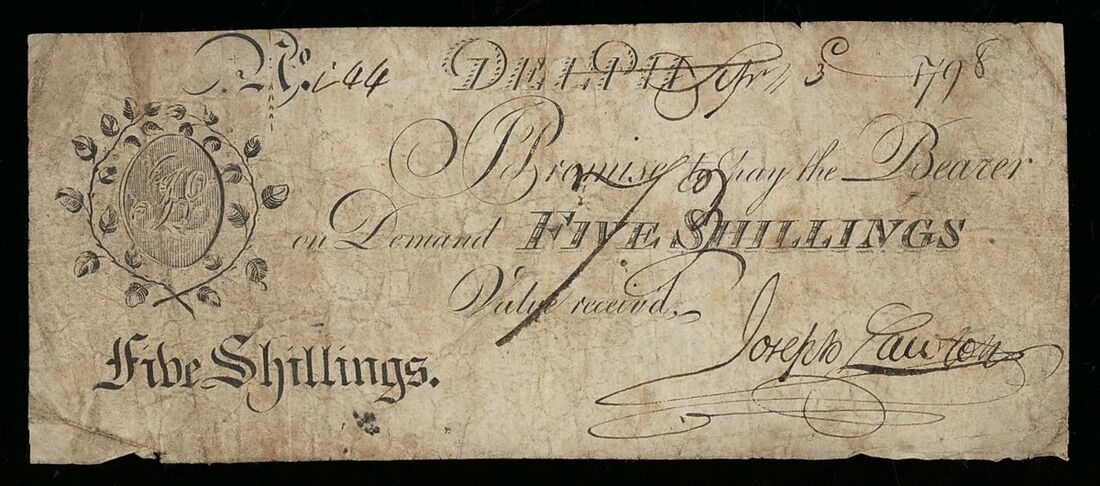 No. 144 DELPH Apr 3 1798
I Promise to pay the Bearer
on Demand FIVE SHILLINGS
Value receivd,
Joseph Lawton
Five Shillings.